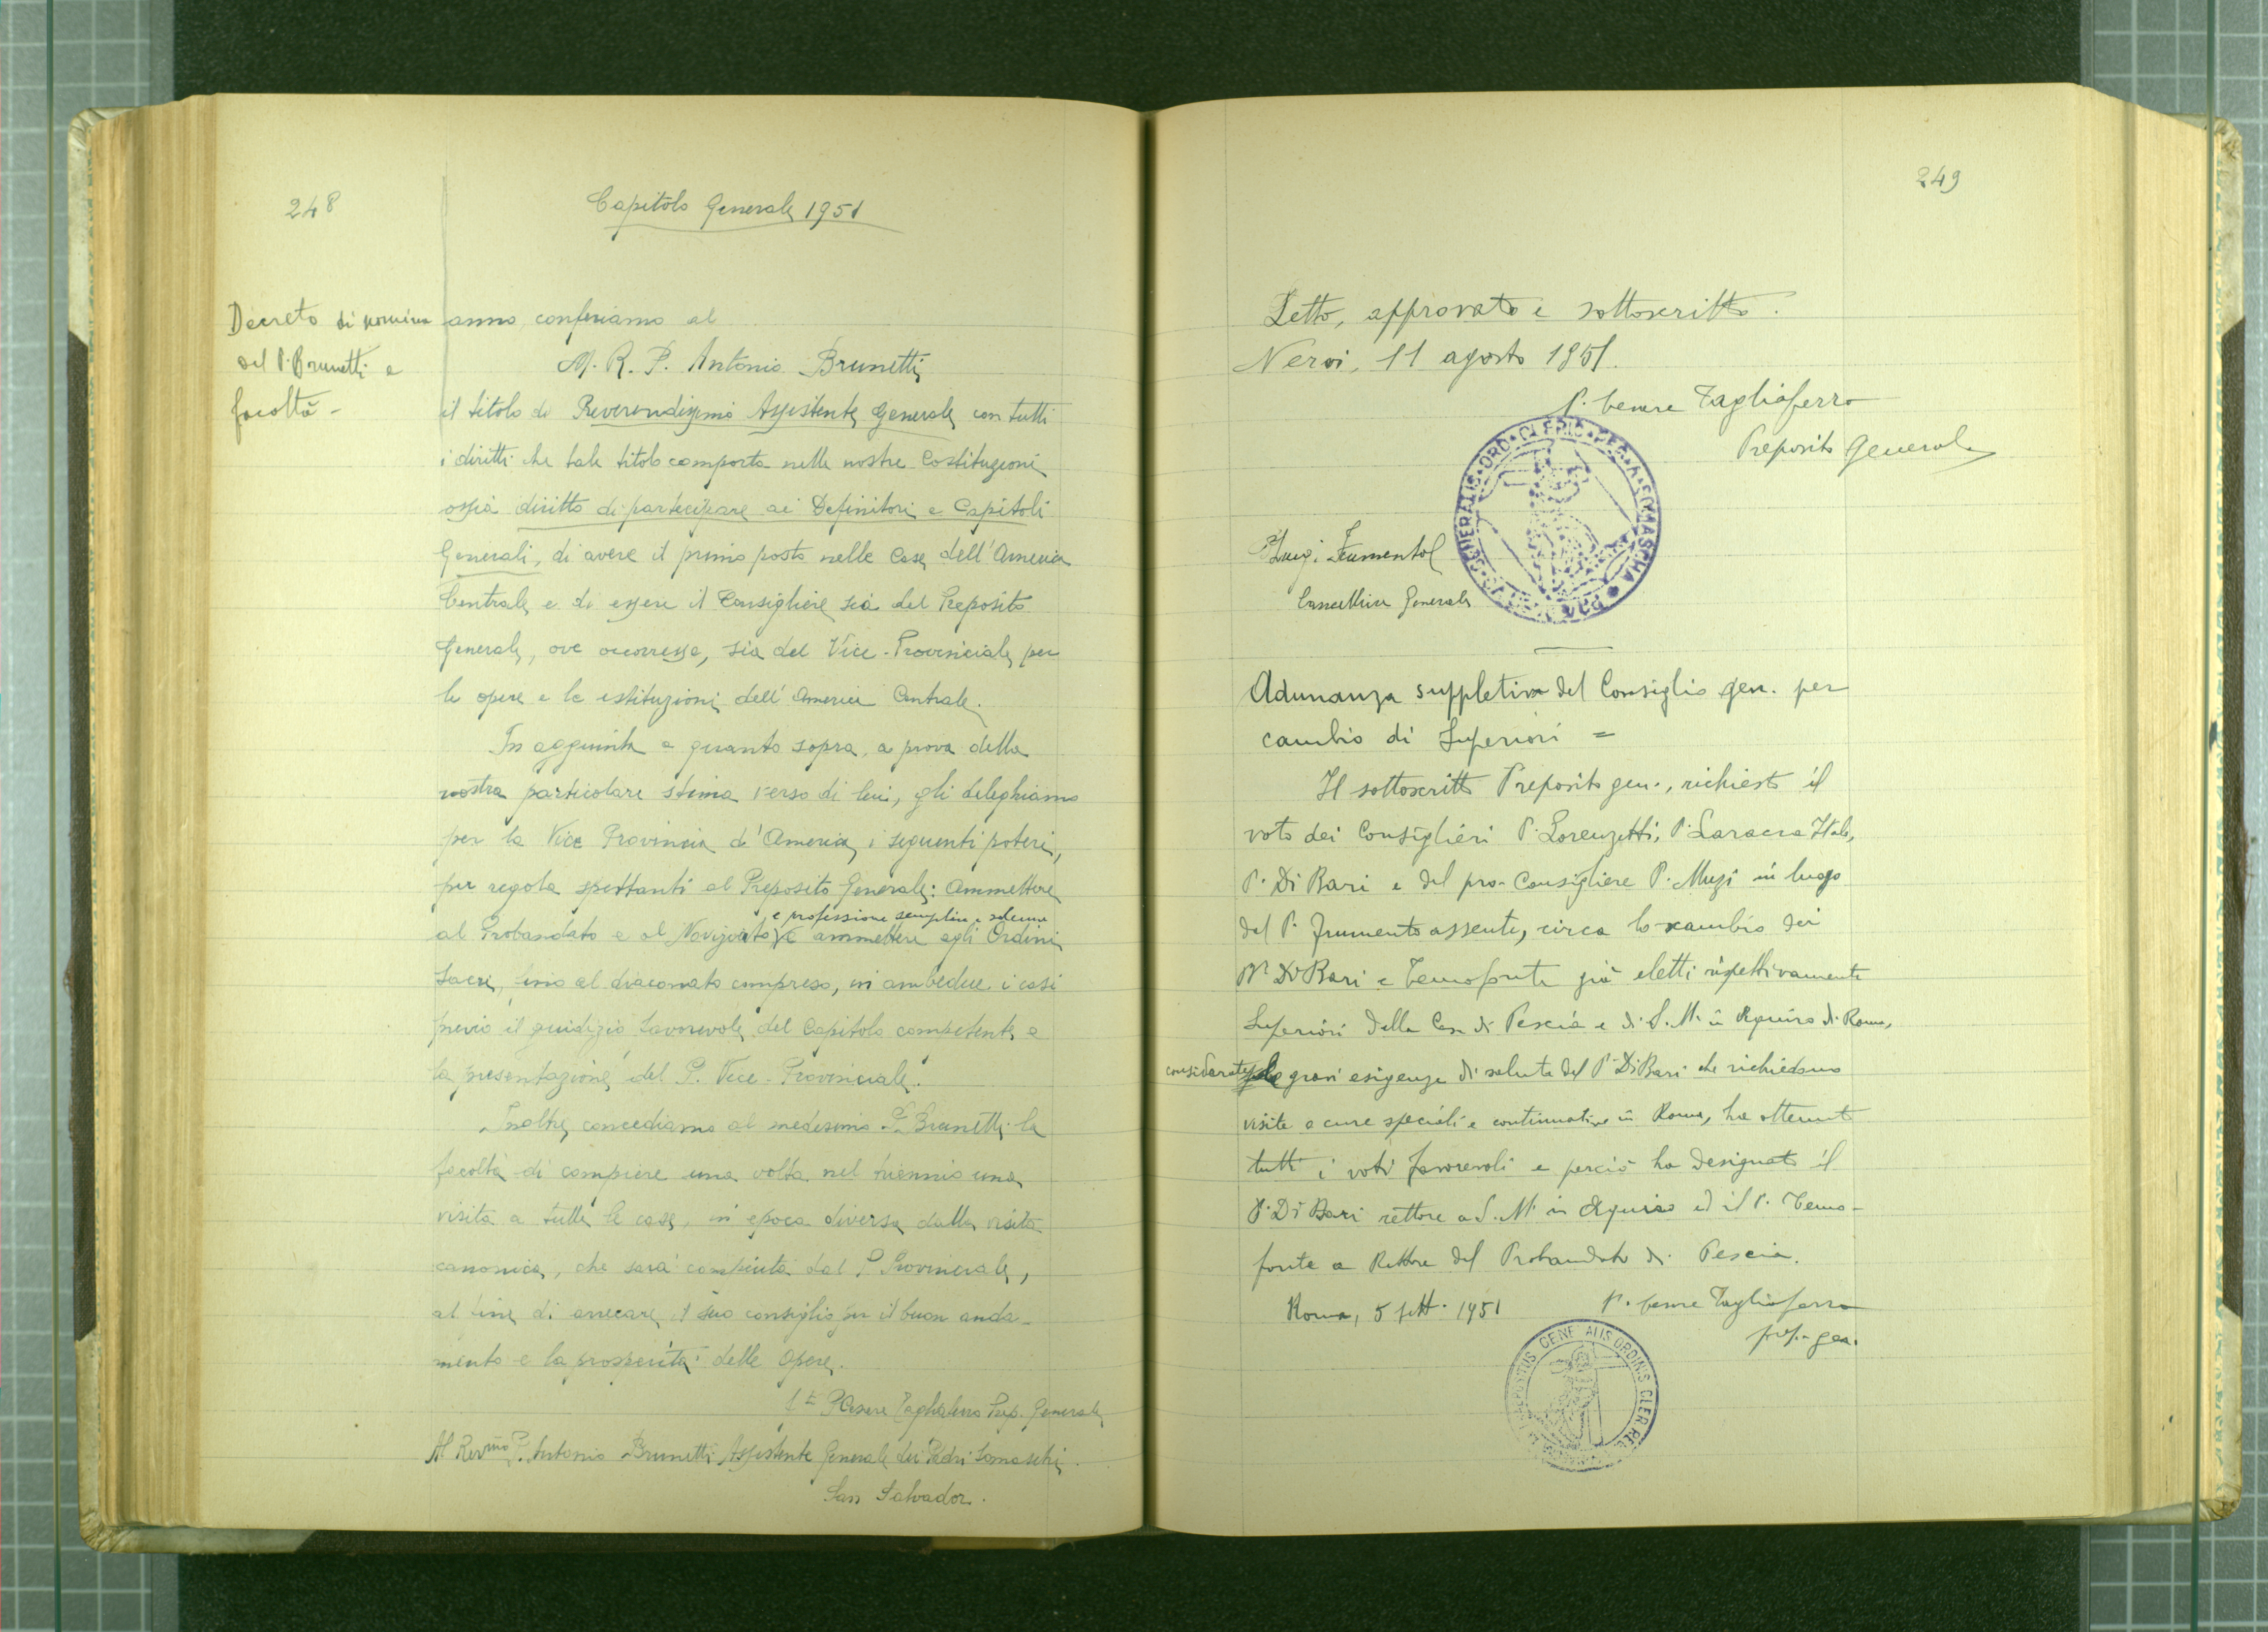 248
Capitolo Generale 1951
Decreto di nomina
del P. Brunetti e
facoltà -
anno, conferiamo al
M. R. P. Antonio Brunetti
il titolo di Reverendissimo Assistente Generale con tutti
i diritti che tale titolo comporta nelle nostre Costituzioni
ossia diritto di partecipare ai Definitori e Capitoli
Generali, di avere il primo posto nelle Case dell'America
Centrale e di essere il Consigliere sia del Preposito
Generale, ove occorresse, sia del Vice-Provinciale per
le opere e le istituzioni dell'America Centrale.
In aggiunta a quanto sopra, a prova della
nostra particolare stima verso di lui, gli deleghiamo
per la Vice Provincia d'America, i seguenti poteri,
per regola spettanti al Preposito Generale: Ammettere
e professione semplice e solenne
al Probandato e al Noviziato, e ammettere agli Ordini
Sacri, fino al diaconato compreso, in ambedue i casi
previo il giudizio favorevole del Capitolo competente e
la presentazione del P. Vice-Provinciale.
Inoltre concediamo al medesimo P. Brunetti la
facoltà di compiere una volta nel triennio una
visita a tutte le case, in epoca diversa dalla visita
canonica, che sarà compiuta dal P. Provinciale,
al fine di arrecare il suo consiglio per il buon anda-
mento e la prosperità delle opere.
P. Cesare Tagliaferro Prep. Generale
Al Rev.mo P. Antonio Brunetti Assistente Generale dei Padri Somaschi.
San Salvador.
249
Letto, approvato e sottoscritto.
Nervi, 11 agosto 1951.
P. Cesare Tagliaferro
Preposito Generale
GENERALIS ORD. CLERIC. REG. A SOMASCHA
P. Luigi Frumento
Cancelliere Generale
Adunanza suppletiva del Consiglio gen. per
cambio di Superiori =
Il sottoscritto Preposito gen., richiesto il
voto dei Consiglieri P. Lorenzetti, P. Laracca Italo,
P. Di Bari e del pro-Consigliere P. Muzi in luogo
del P. Frumento assente, circa lo scambio dei
PP. Di Bari e Temofonte già eletti rispettivamente
Superiori della Casa di Pescia e di S. M. in Aquiro di Roma,
considerate le gravi esigenze di salute del P. Di Bari che richiedono
visite e cure speciali e continuative in Roma, ha ottenuto
tutti i voti favorevoli e perciò ha designato il
P. Di Bari rettore a S. M. in Aquiro ed il P. Temo-
fonte a Rettore del Probandato di Pescia.
Roma, 5 sett. 1951
P. Cesare Tagliaferro
prep. gen.
PRAEPOSITUS GENERALIS ORDINIS CLER. REG.